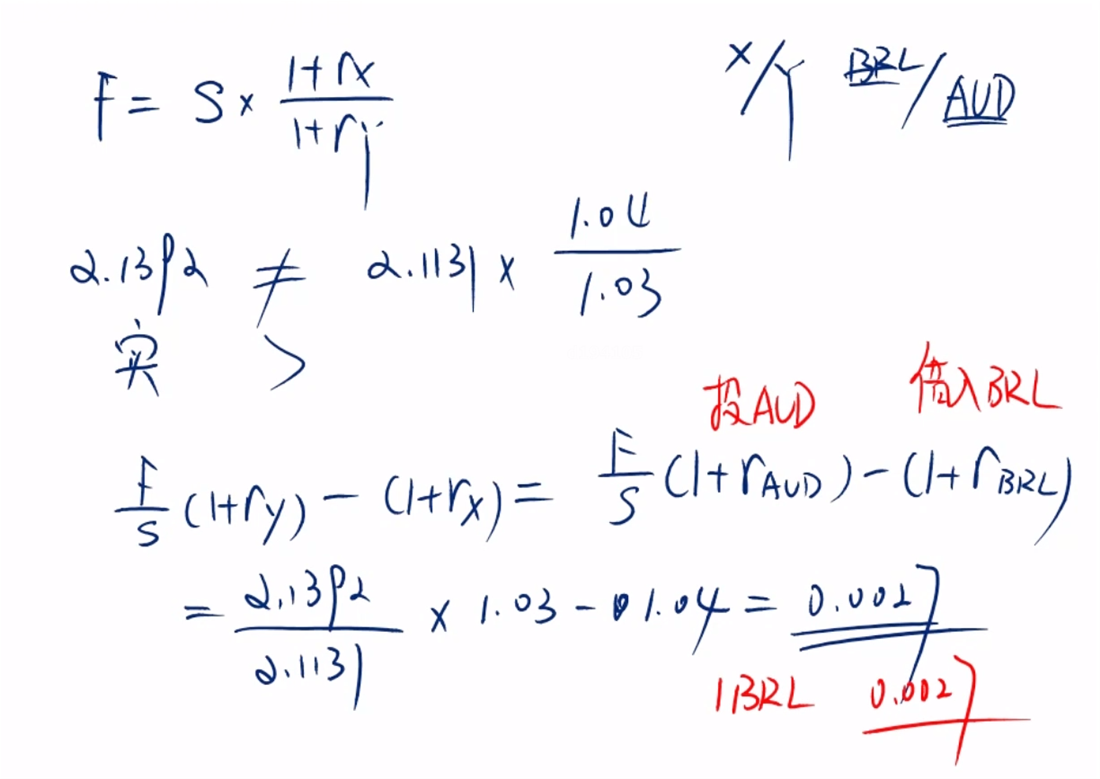 F = S × (1+rx)/(1+ry)    x/y BRL/AUD
2.1392 ≠ 2.1131 × 1.04/1.03
实 >
投AUD 借入BRL
F/S (1+ry) - (1+rx) = F/S (1+rAUD) - (1+rBRL)
= 2.1392/2.1131 × 1.03 - 1.04 = 0.0027
1BRL 0.0027